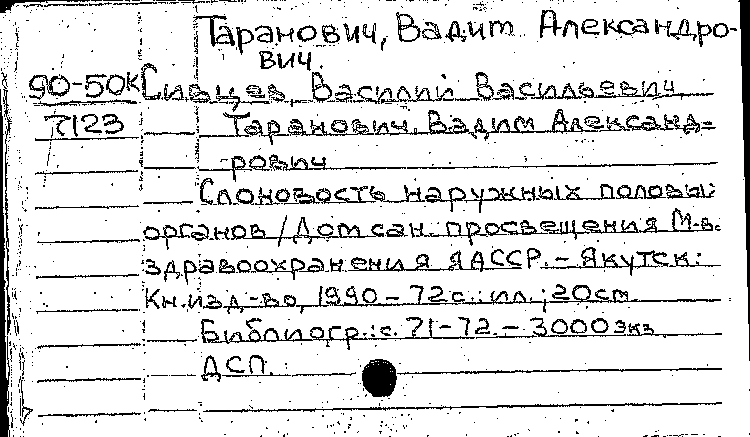 Таранович, Вадим Александро-
вич.
90-50к Сивцев, Василий Васильевич,
7123 Таранович, Вадим Александ-
рович
Слоновость наружных половы:
органов/Дом сан. просвещения М-ва
здравоохранения ЯАССР. – Якутск:
Кн. изд-во, 1990 – 72с.: ил.; 20см
Библиогр.: с. 71-72. – 3000экз
ДСП.